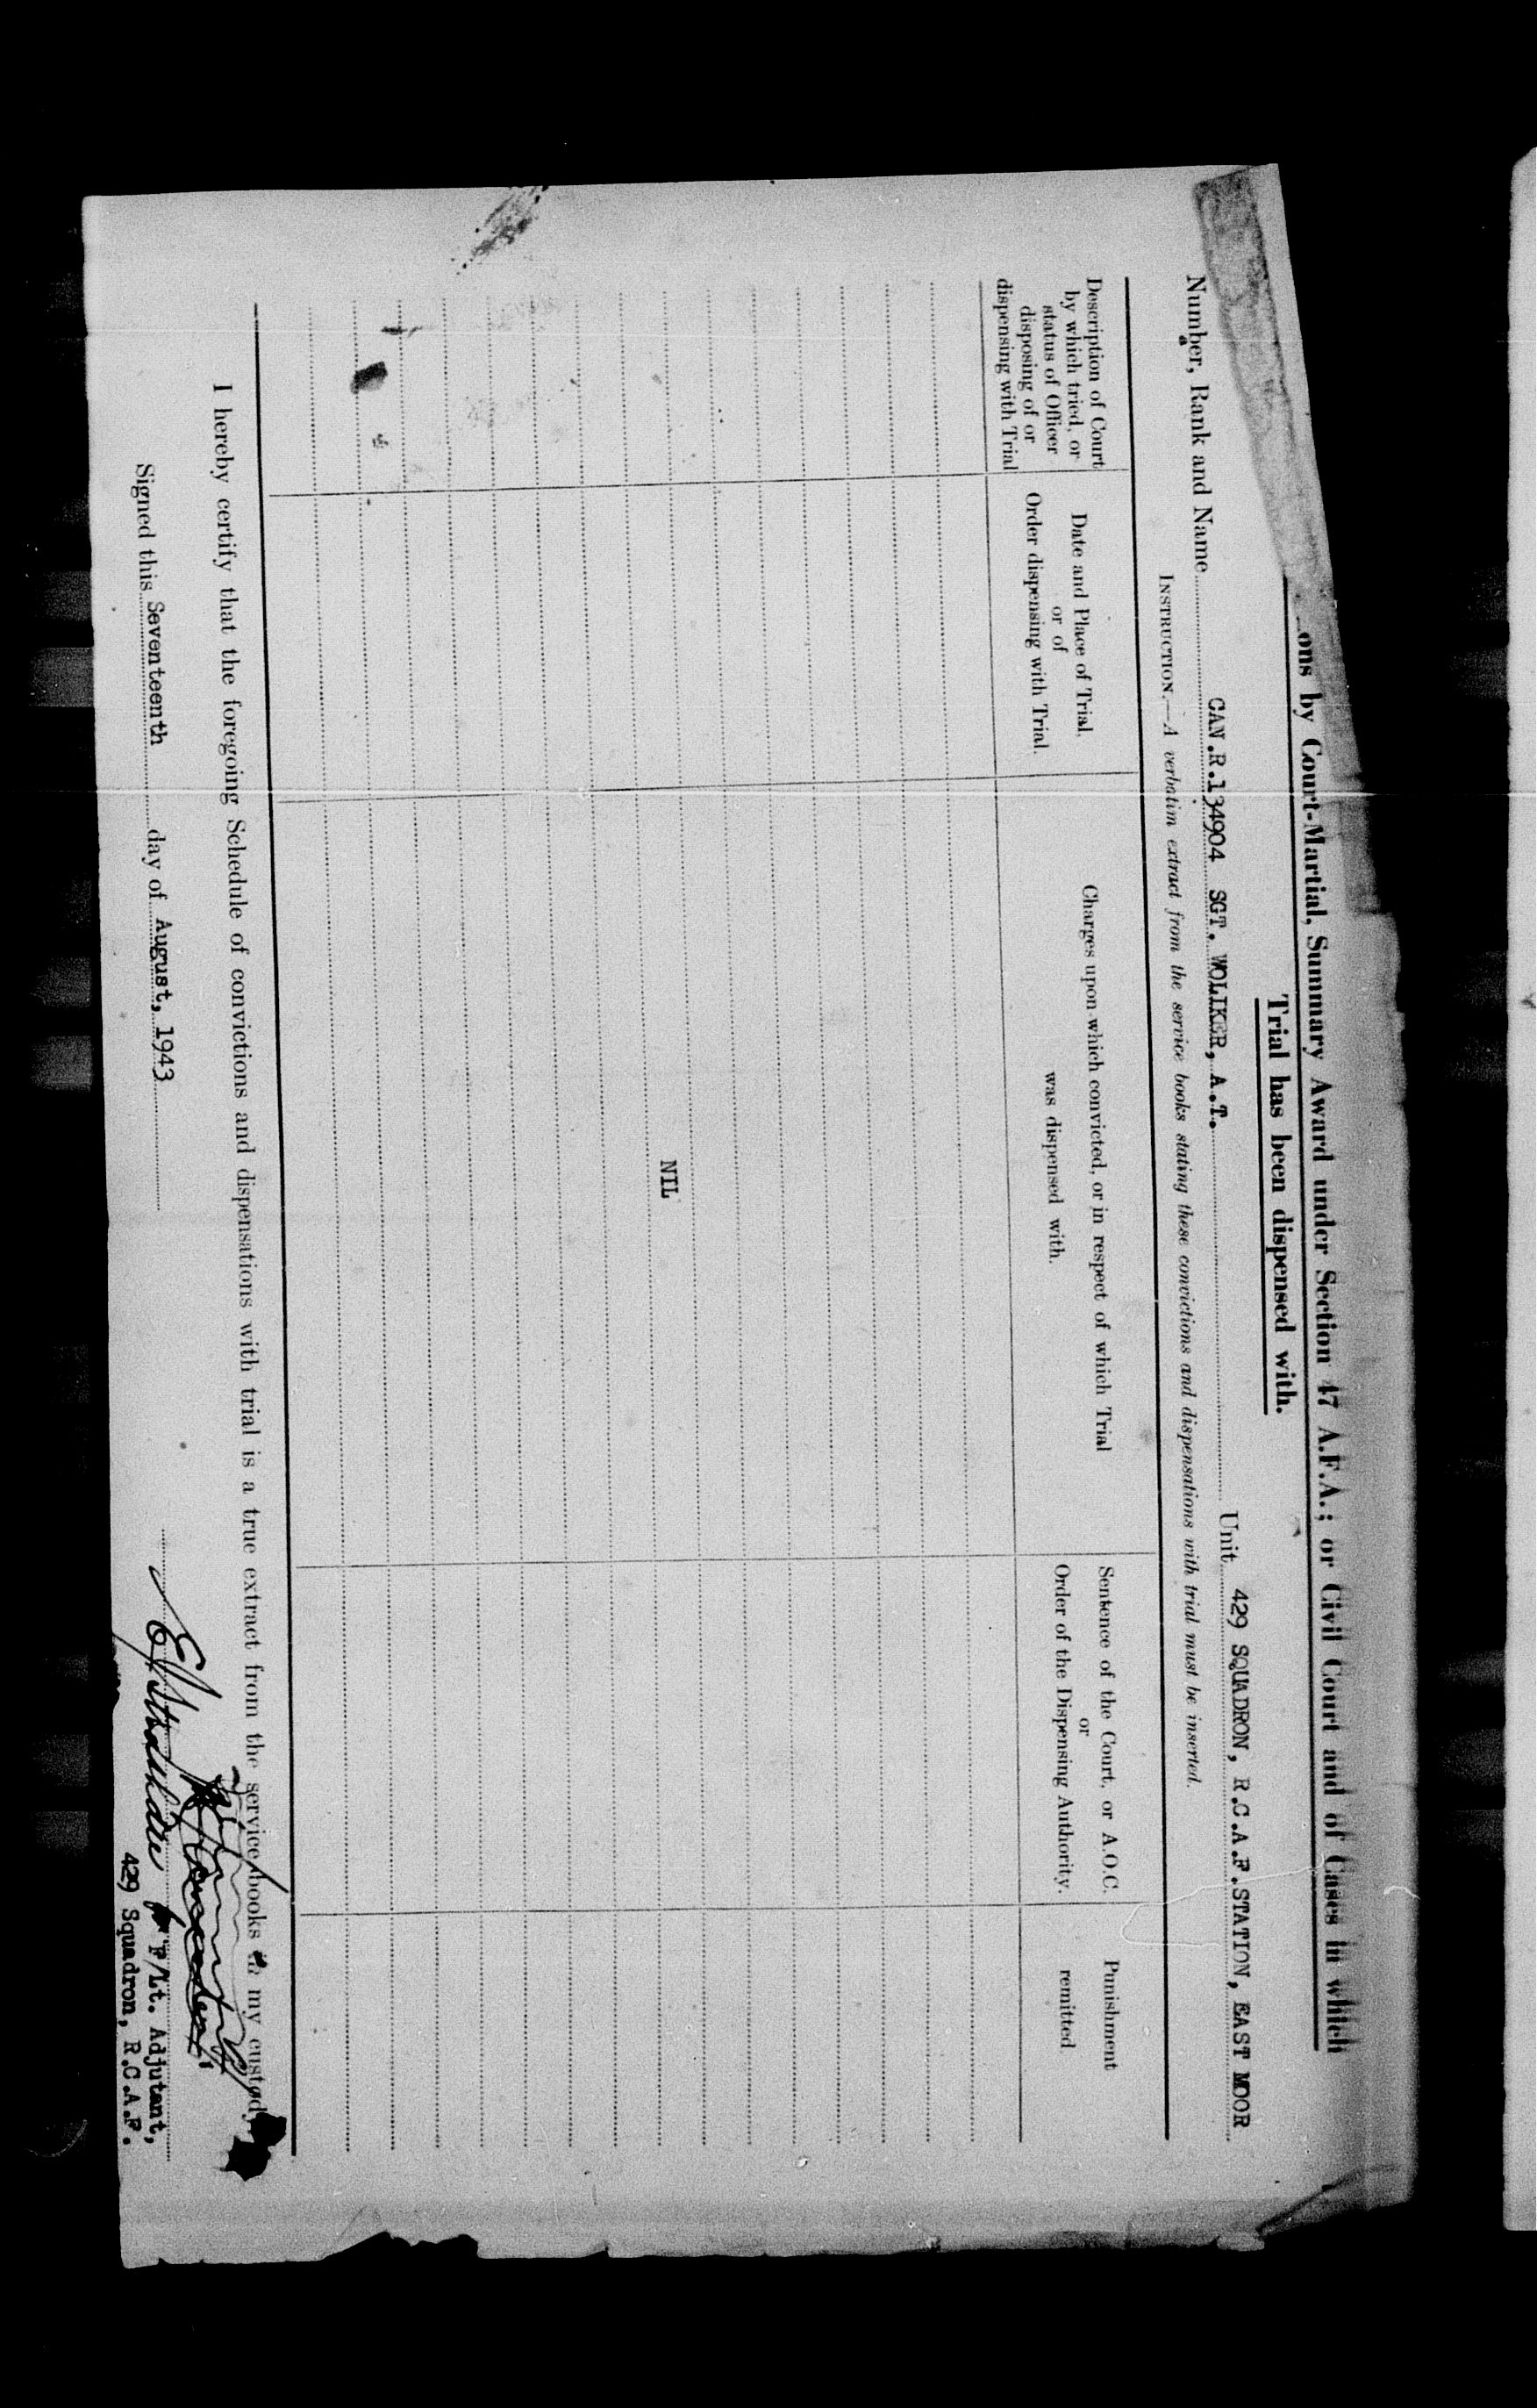 ons by Court-Martial, Summary Award under Section 47 A.F.A.; or Civil Court and of Cases in which
Trial has been dispensed with.
Number, Rank and Name CAN.R.134904 SGT. WOLIKER, A.T. Unit 429 SQUADRON, R.C.A.F. STATION, EAST MOOR
INSTRUCTION.—A verbatim extract from the service books stating these convictions and dispensations with trial must be inserted.
Description of Court
by which tried, or
status of Officer
disposing of or
dispensing with Trial
Date and Place of Trial.
or of
Order dispensing with Trial.
Charges upon which convicted, or in respect of which Trial
was dispensed with.
Sentence of the Court, or A.O.C.
or
Order of the Dispensing Authority.
Punishment
remitted
NIL
I hereby certify that the foregoing Schedule of convictions and dispensations with trial is a true extract from the service books in my custody.
Signed this Seventeenth day of August, 1943
for F/Lt. Adjutant,
429 Squadron, R.C.A.F.